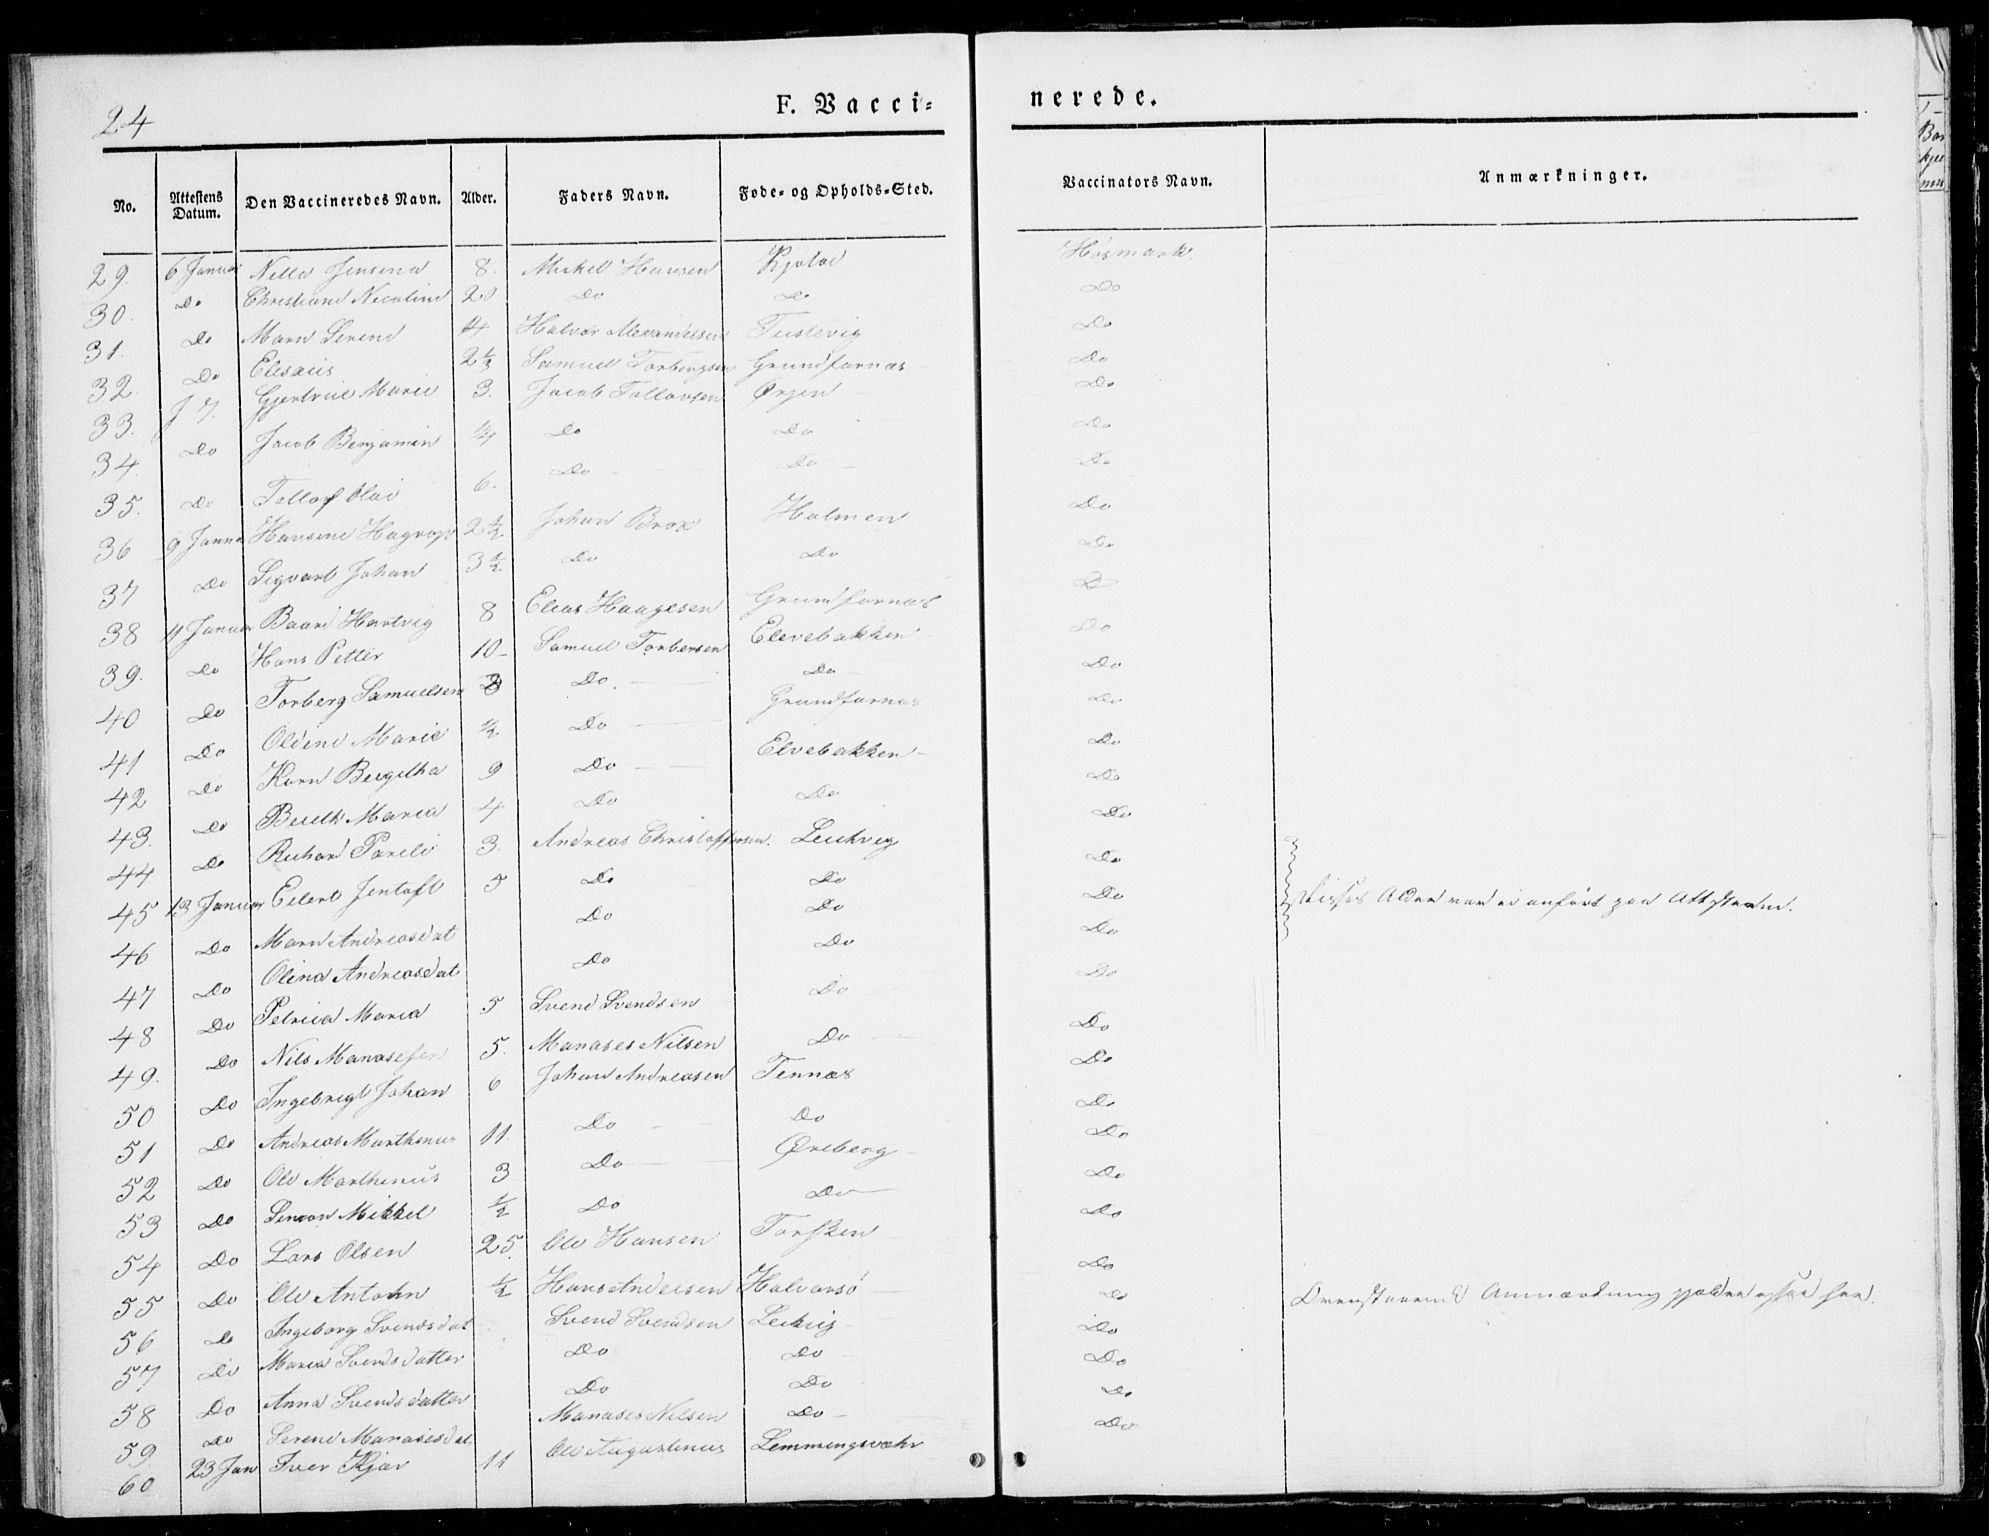 24
F. Vacci=
nerede.
No. Attestens Datum. Den Vaccineredes Navn. Alder. Faders Navn. Føde- og Opholds-Sted. Vaccinators Navn. Anmærkninger.
29. 6 Januar Nella Jensena 8. Mickel Hansen Kjøløe Høsmark.
30. Do Christiane Nicoline 20 Do Do Do
31. Do Maren Serene 14 Halvor Alexandersen Tuslevig Do
32. Do Eliseus 2½ Samuel Torbergsen Grundfarnæs Do
33. J 7. Gjertrue Marie 3. Jacob Tollovsen Ørjen Do
34. Do Jacob Benjamin ¼ Do Do Do
35. Do Tollof Olai 6. Do Do Do
36 9 Janua Hansine 2½ Johan Brox Holmen Do
37 Do Sigvart Johan 3½ Do Do Do
38 11 Januar Baard Hartvig 8 Elias Haagesen Grundfarnæs Do
39. Do Hans Petter 10 Samuel Torbersen Elevebakken Do
40 Do Torberg Samuelsen Do Do Do
41 Do Oldine Marie ½ Do Grundfarnæs Do
42 Do Karn Bergitha 9 Do Elvebakken Do
43. Do Bereth Maria 4 Do Do Do
44 Do Richard Pareli 3. Andreas Christoffersen. Leikvig Do
45 13 Januar Eilert Jentoft 5 Do Do Do
46 Do Marn Andreasdat Do Do Do Disses Alder var ei anført paa Attesterne.
47 Do Olina Andreasdat Do Do Do
48 Do Petrica Maria 5 Svend Svendsen Do Do
49. Do Nils Manasesen 5. Manases Nilsen Do Do
50 Do Ingebrigt Johan 6 Johan Andreasen Tennæs Do
51 Do Andreas Marthenus 11. Do Do Do
52 Do Ole Marthenus 3 Do Øreberg Do
53 Do Simon Mikkel ½ Do Do Do
54 Do Lars Olsen 25. Ole Hansen Torsken Do
55 Do Ole Antohn ½ Hans Andersen Halvarsø Do
56 Do Ingeborg Svendsdat Svend Svendsen Leikvig Do Ovenstaaende Anmærkning gjælder ogsaa her.
57 Do Maria Svendsdatter Do Do Do
58 Do Anna Svendsdatter Do Do Do
59 Do Serine Manasesdat Manases Nilsen Do Do
60 23 Jan Iver Kjær 11 Ole Augustinus Lemmingsvæhr Do